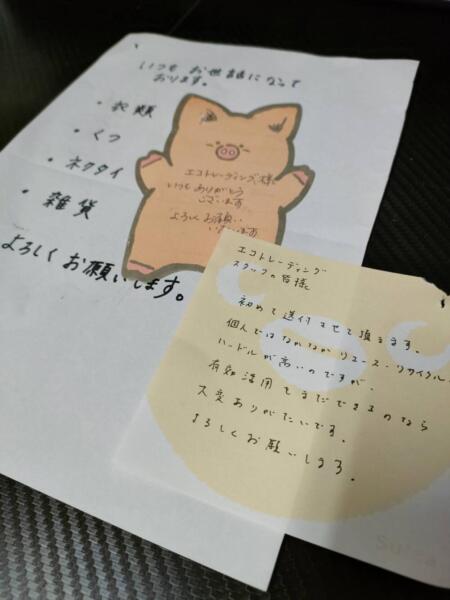 いつも お世話になって
おります。
・衣類
・くつ
・ネクタイ
・雑貨
よろしく お願いします。
エコトレーディング 様
いつも ありがとう
ございます
よろしく お願い
いたします
エコトレーディング
スタッフの皆様
初めて送付させて頂きます。
個人ではなかなかリユース・リサイクル
ハードルが高いのですが、
有効活用もまだできるのなら
大変ありがたいです。
よろしくお願いします。